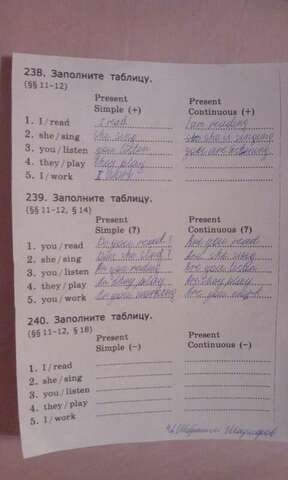 238. Заполните таблицу.
(§§ 11–12)
Present Simple (+) Present Continuous (+)
1. I / read I read I am reading
2. she / sing she sing she is singing
3. you / listen you listen you are
4. they / play they play
5. I / work I work
239. Заполните таблицу.
(§§ 11–12, § 14)
Present Simple (?) Present Continuous (?)
1. you / read Do you read? Are you read
2. she / sing she sing? she sing
3. you / listen Are you Are you listen
4. they / play they play Are they play
5. you / work Are you working Are you
240. Заполните таблицу.
(§§ 11–12, § 18)
Present Simple (–) Present Continuous (–)
1. I / read
2. she / sing
3. you / listen
4. they / play
5. I / work